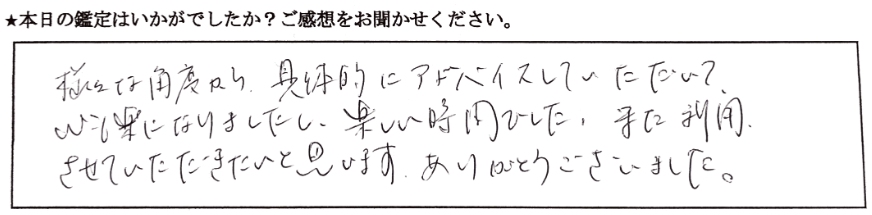 ★本日の鑑定はいかがでしたか？ご感想をお聞かせください。
様々な角度から、具体的にアドバイスしていただいて、
心も楽になりましたし、楽しい時間でした。また利用
させていただきたいと思います。ありがとうございました。